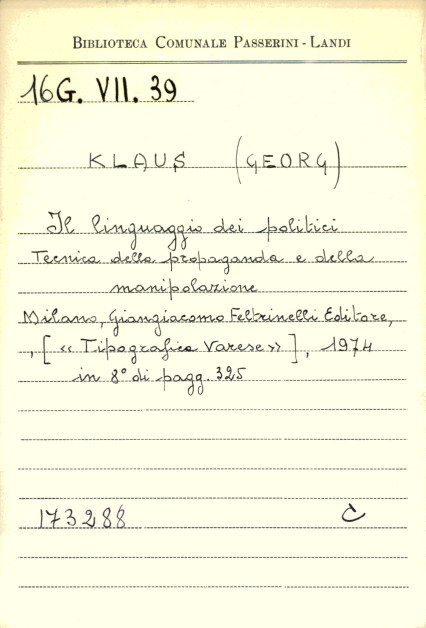 BIBLIOTECA COMUNALE PASSERINI - LANDI
16G. VII. 39
KLAUS (GEORG)
Il linguaggio dei politici
Tecnica della propaganda e della
manipolazione
Milano, Giangiacomo Feltrinelli Editore,
, [ << Tipografica Varese >> ], 1974
in 8° di pagg. 325
173288 C